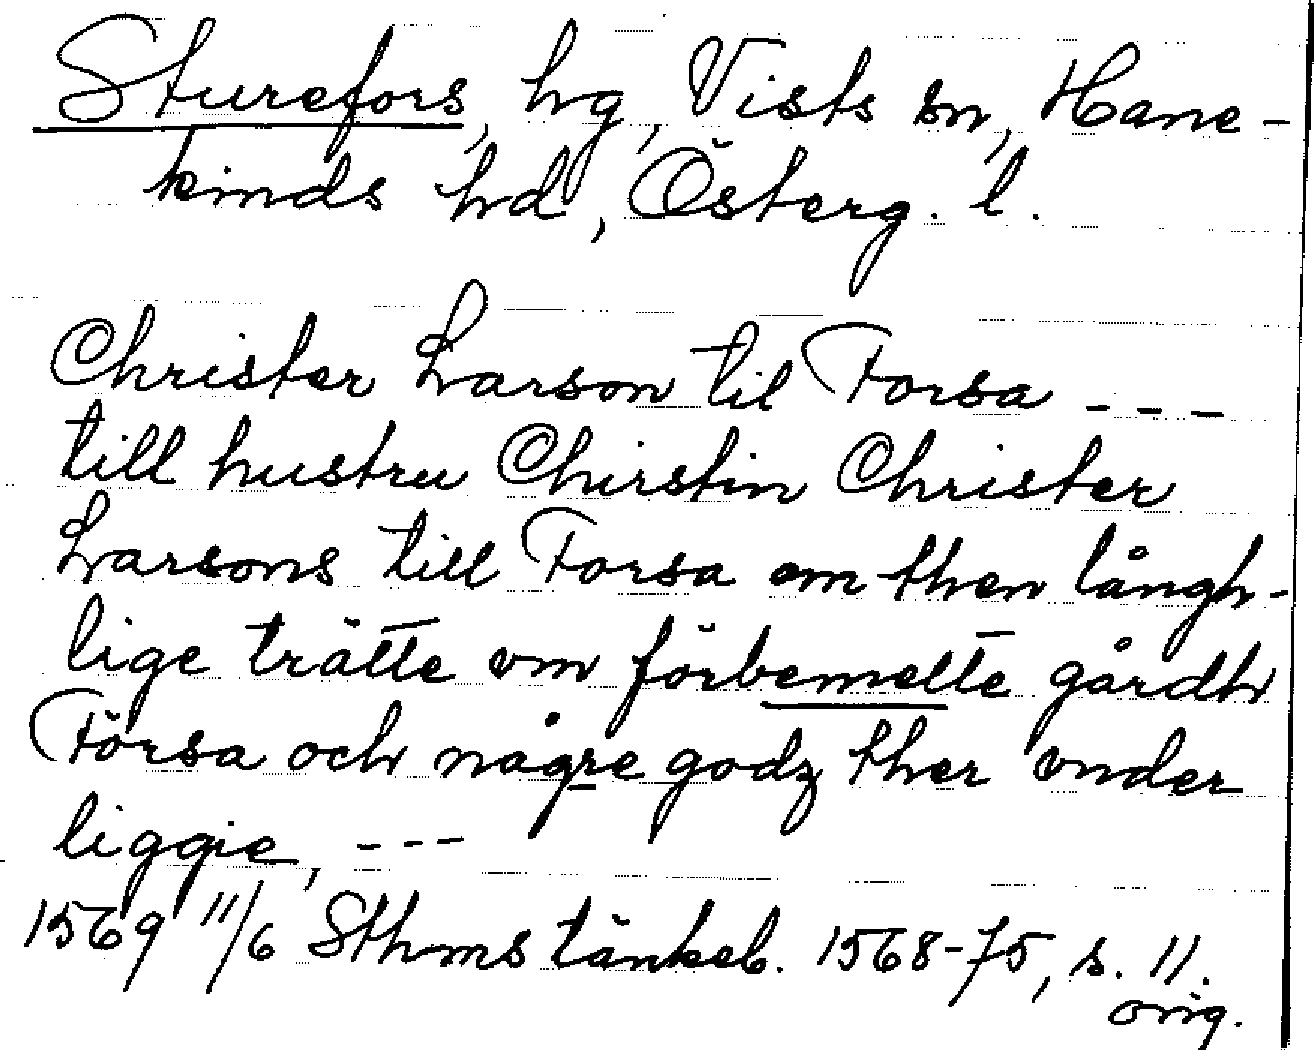 Sturefors, hg, Vists sn, Hane-
kinds hd, Österg. l.
Christer Larson til Forsa - - -
till hustru Chirstin Christer
Larsons till Forsa om then långh-
lige trätte vm förbemelte gårdh
Forsa och någre godz ther vnder
liggie, - - -
1569 11/6 Sthms tänkeb. 1568-75, s. 11.
orig.